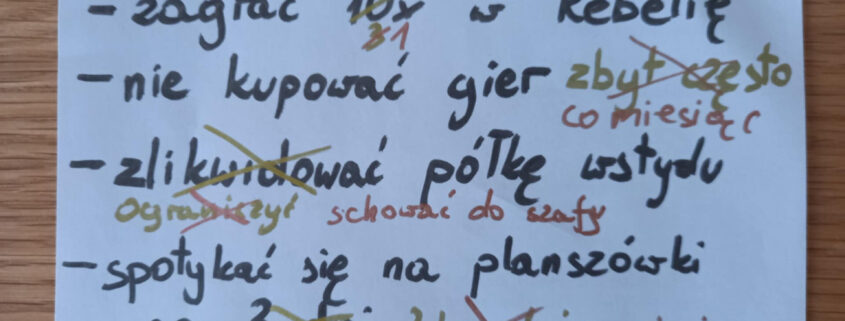 - zagrać 10x w Rebelię
3 1
- nie kupować gier zbyt często
co miesiąc
- zlikwidować półkę wstydu
ograniczyć schować do szafy
- spotykać się na planszówki